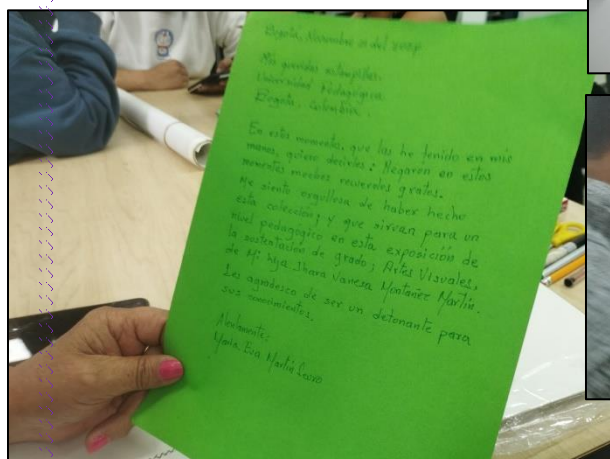 Bogotá, Noviembre del
Mis queridas estampillas.
Universidad Pedagógica.
Bogotá, Colombia.
En estos momentos, que las he tenido en mis
manos, quiero decirles: llegaron en estos
momentos muchos recuerdos gratos.
Me siento orgullosa de haber hecho
esta colección; y que sirvan para un
nivel pedagógico en esta exposición de
la sustentación de grado; Artes Visuales,
de Mi hija Shara Vanesa Montañez Martín.
Les agradesco de ser un detonante para
sus conocimientos.
Atentamente:
María Eva Martín